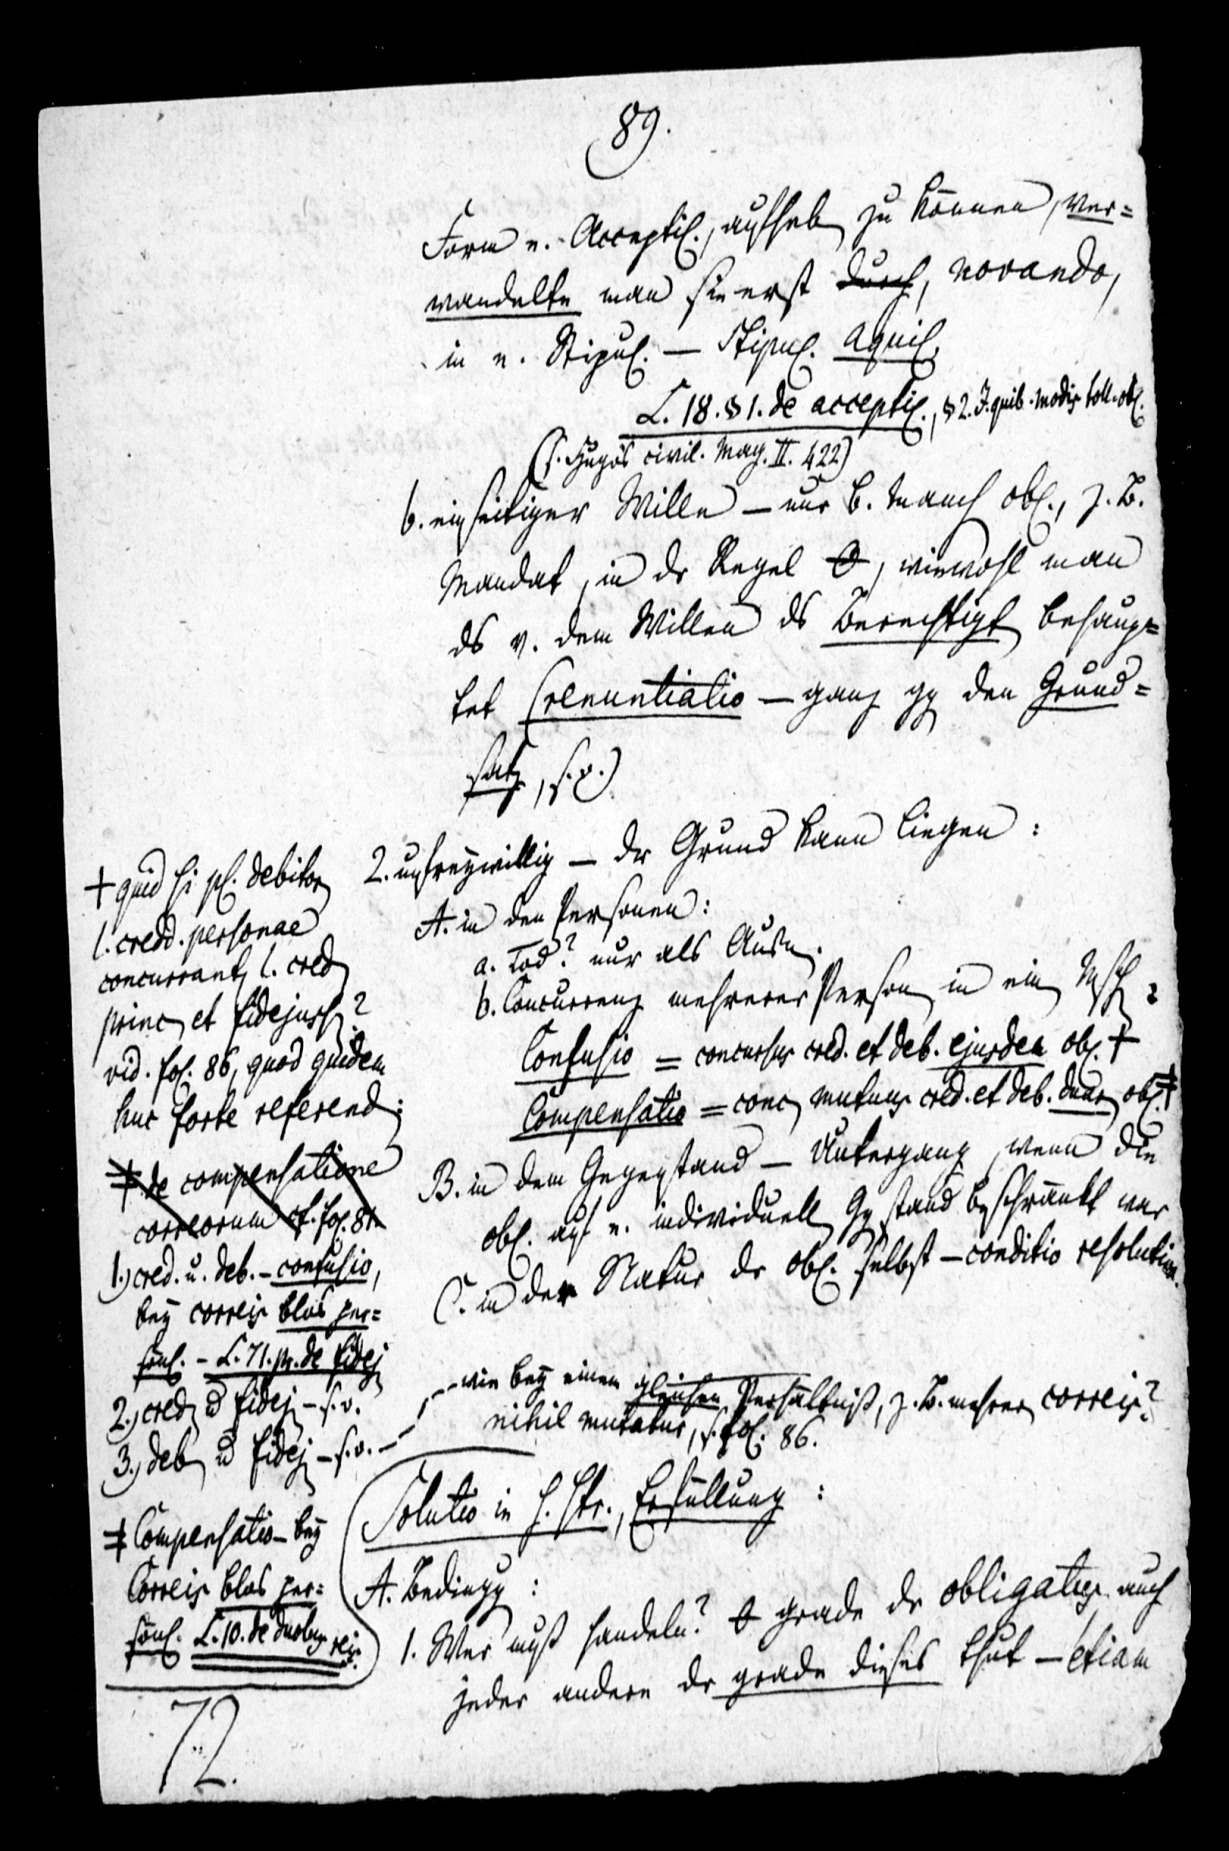 89.
Form e. Acceptil., aufheb zu können, ver=
wandelte man sie erst durch, novando,
in e. Stipul. — Stipul. Aquil.
L. 18. § 1. de acceptil., § 2. J. quib. modis toll. obl.
(s. Hugos civil. Mag. II. 422)
b. einseitiger Wille — nur b. manch obl., z. B.
Mandat, in dr Regel 0, wiewohl man
ds v. dem Willen ds Berechtigt behaup=
tet (renuntiatio — ganz gg den Grund=
satz, s. o.)
2. unfreywillig — dr Grund kann liegen:
A. in den Personen:
a. Tod? nur als Ausn.
b. Concurrenz mehrerer Person in ein Msch:
Confusio = concursus cred. et deb. ejusdem obl. +
Compensatio = conc mutuus cred. et deb. duar obl. ‡
B. in dem Gegenstand — Untergang, wenn die
obl. auf e. individuell Ggstand beschränkt war
C. in der Natur dr obl. selbst — conditio resolutiva.
wie bey einem gleichen Verhältniß, z. B. mehrer correis?
nihil mutatur, s. fol. 86.
Solutio in s. str., Erfüllung:
A. Bedingg:
1. Wer muß handeln? 0 grade dr obligatus auch
jeder andere dr grade dieses thut — etiam
+ quid si pl. debitor
l. cred. personae
concurrant, l. cred
princ et fidejuss?
vid. fol. 86, quod quidem
huc forte referend:
‡ de compensatione
correorum cf. fol. 81.
1.) cred. u. deb. — confusio,
bey correis blos per=
sönl. — L. 71. pr. de fidej
2.) cred u fidej — s. o.
3.) deb u fidej — s. o. —
‡ Compensatio — bey
Correis blos per=
sönl. L. 10. de duobus reis.
72.